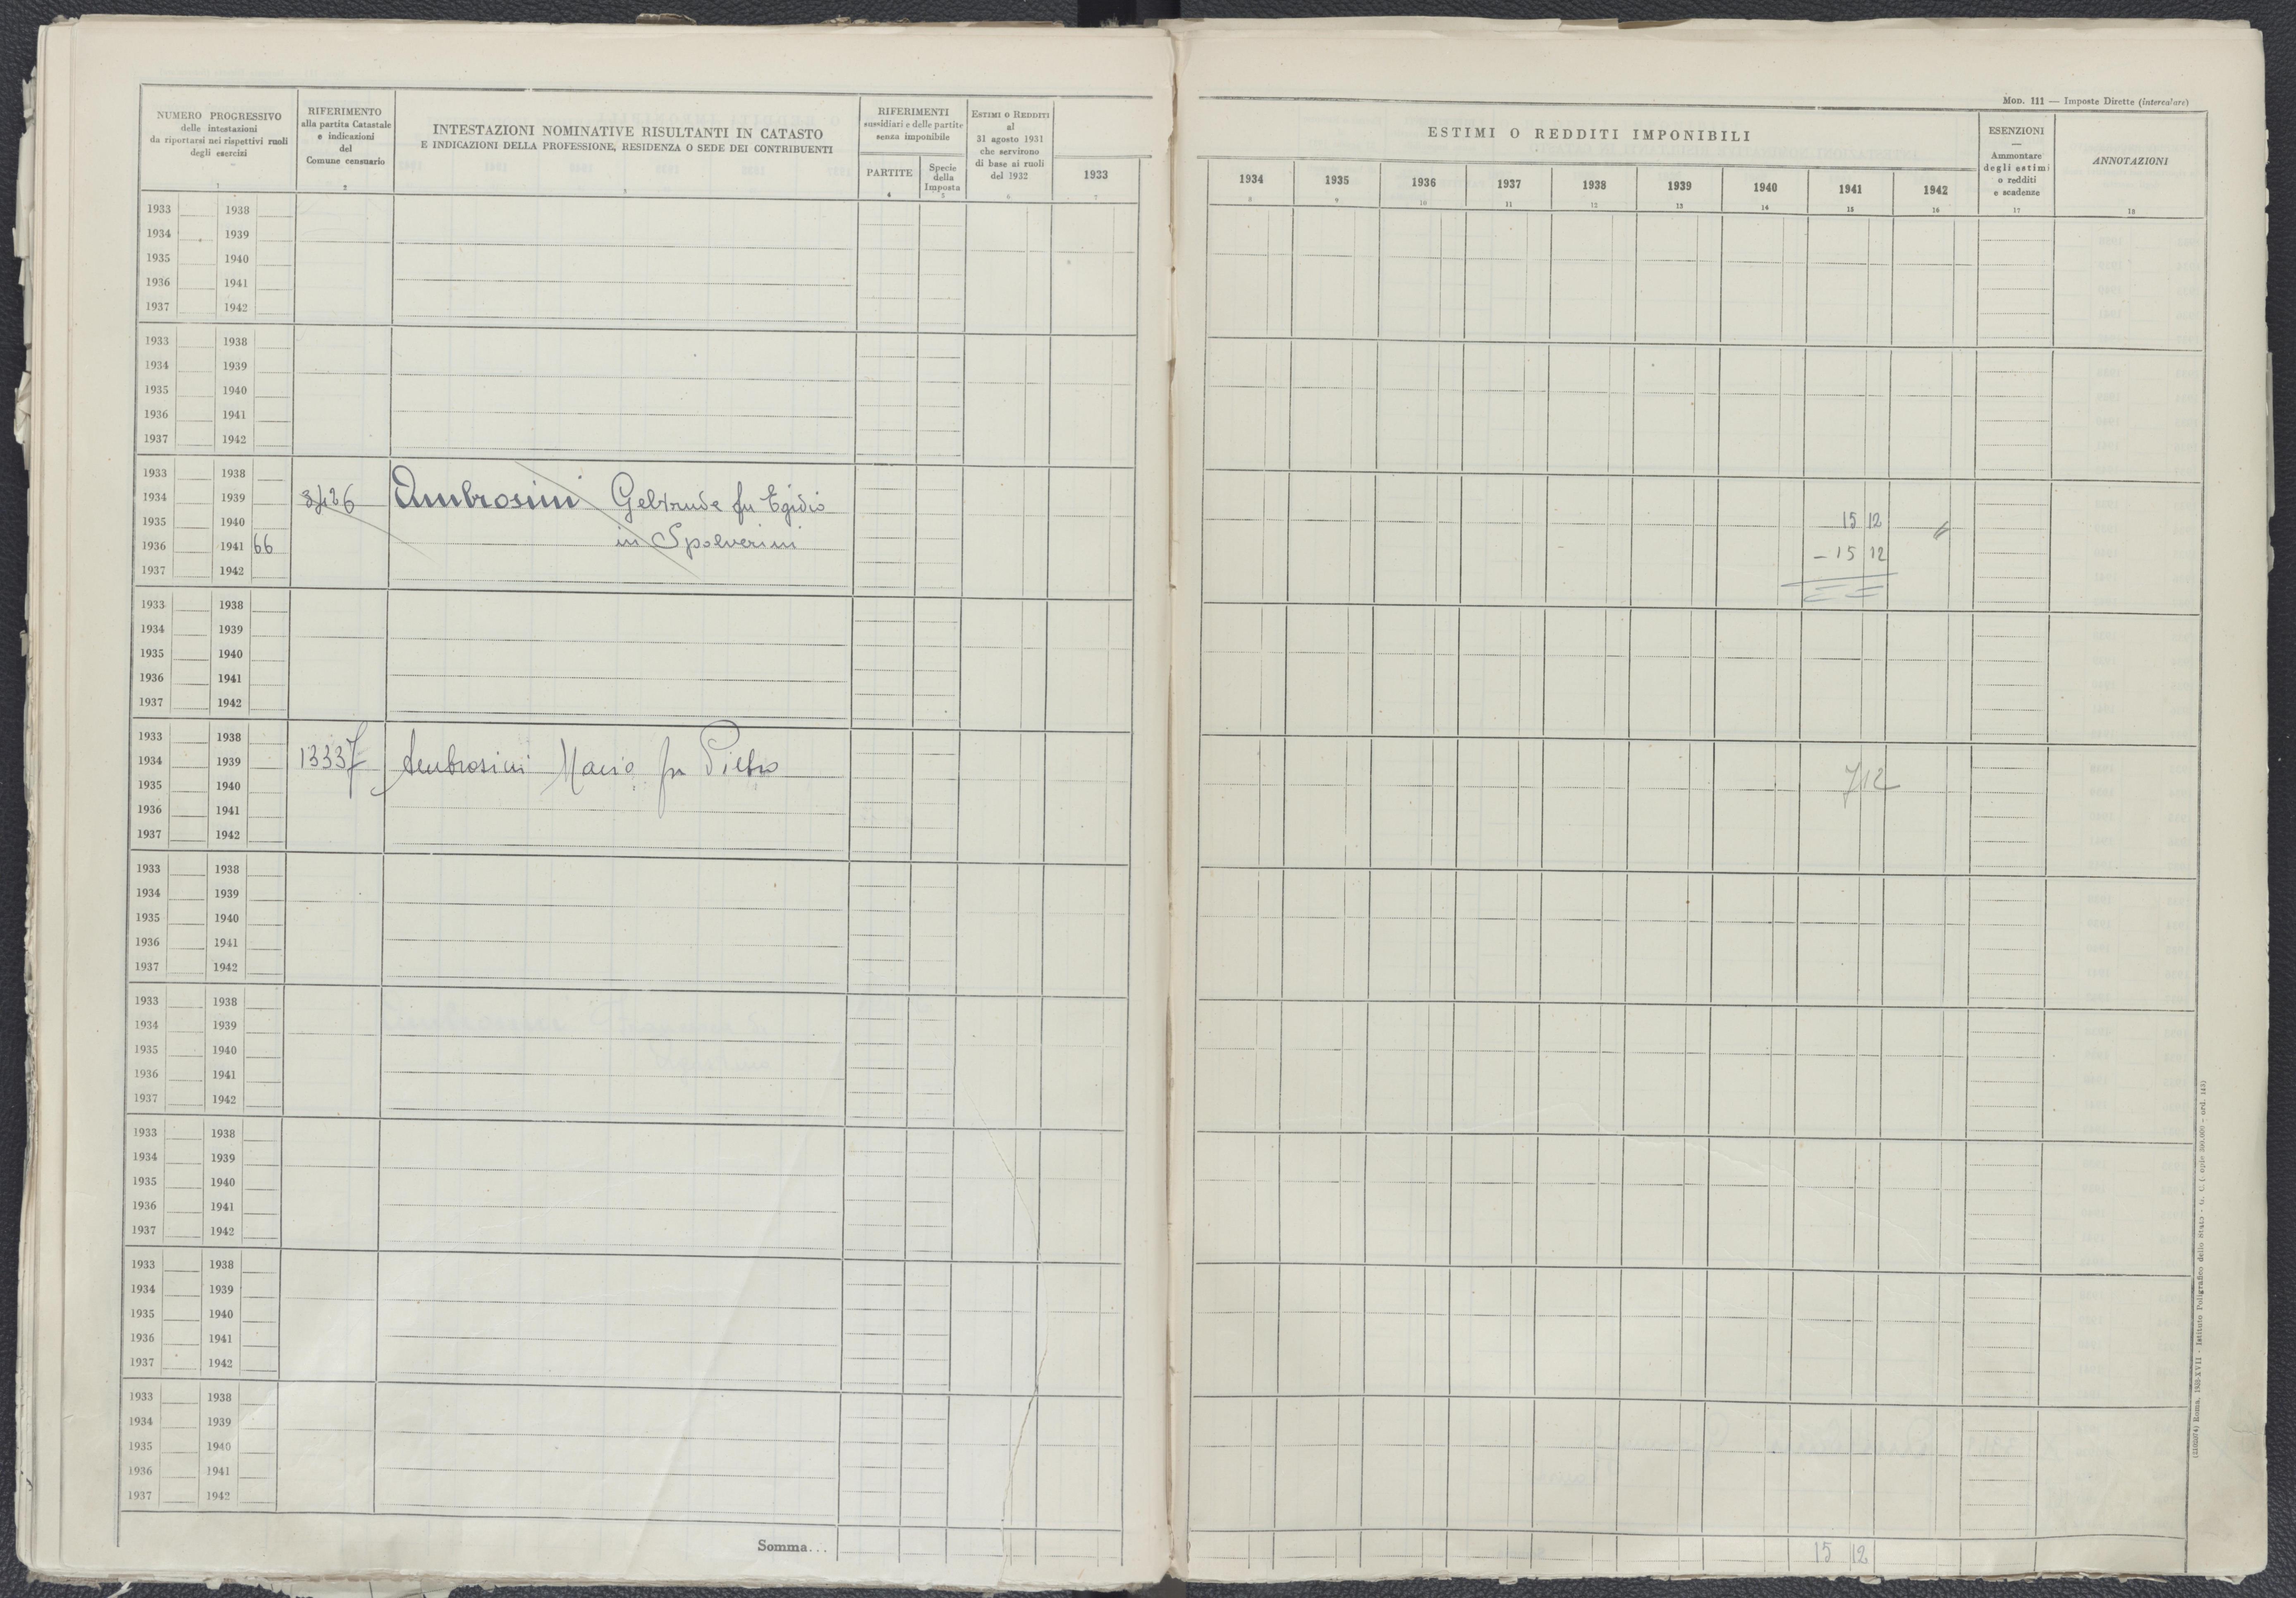 MOD. 111 — Imposte Dirette (intercalare)
NUMERO PROGRESSIVO
delle intestazioni
da riportarsi nei rispettivi ruoli
degli esercizi
1
RIFERIMENTO
alla partita Catastale
e indicazioni
del
Comune censuario
2
INTESTAZIONI NOMINATIVE RISULTANTI IN CATASTO
E INDICAZIONI DELLA PROFESSIONE, RESIDENZA O SEDE DEI CONTRIBUENTI
3
RIFERIMENTI
sussidiari e delle partite
senza imponibile
PARTITE
4
Specie
della
Imposta
5
ESTIMI O REDDITI
al
31 agosto 1931
che servirono
di base ai ruoli
del 1932
6
1933
7
ESTIMI O REDDITI IMPONIBILI
1934 1935 1936 1937 1938 1939 1940 1941 1942
8 9 10 11 12 13 14 15 16
ESENZIONI
—
Ammontare
degli estimi
o redditi
e scadenze
17
ANNOTAZIONI
18
1933 1938
1934 1939
1935 1940
1936 1941
1937 1942
1933 1938
1934 1939
1935 1940
1936 1941
1937 1942
1933 1938
1934 1939 3426 Ambrosini Geltrude fu Egidio
1935 1940 15 12
1936 1941 66 in Spolverini
— 15 12
1937 1942
1933 1938
1934 1939
1935 1940
1936 1941
1937 1942
1933 1938
1934 1939 13337 Ambrosini Mario fu Pietro
1935 1940 7 12
1936 1941
1937 1942
1933 1938
1934 1939
1935 1940
1936 1941
1937 1942
1933 1938
1934 1939
1935 1940
1936 1941
1937 1942
1933 1938
1934 1939
1935 1940
1936 1941
1937 1942
1933 1938
1934 1939
1935 1940
1936 1941
1937 1942
1933 1938
1934 1939
1935 1940
1936 1941
1937 1942
Somma... 15 12
Roma, 1939-XVII - Istituto Poligrafico dello Stato - G. C.